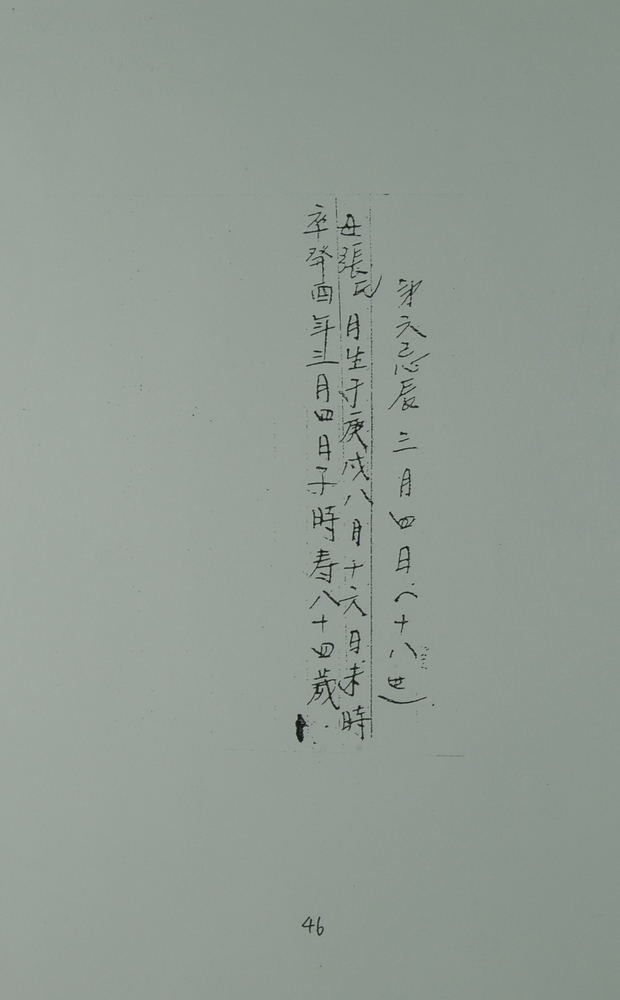 第六忌辰三月四日(十八世)
母張氏月生于庚戍八月十六日未時
卒癸酉年三月四日子時寿八十四歲
46